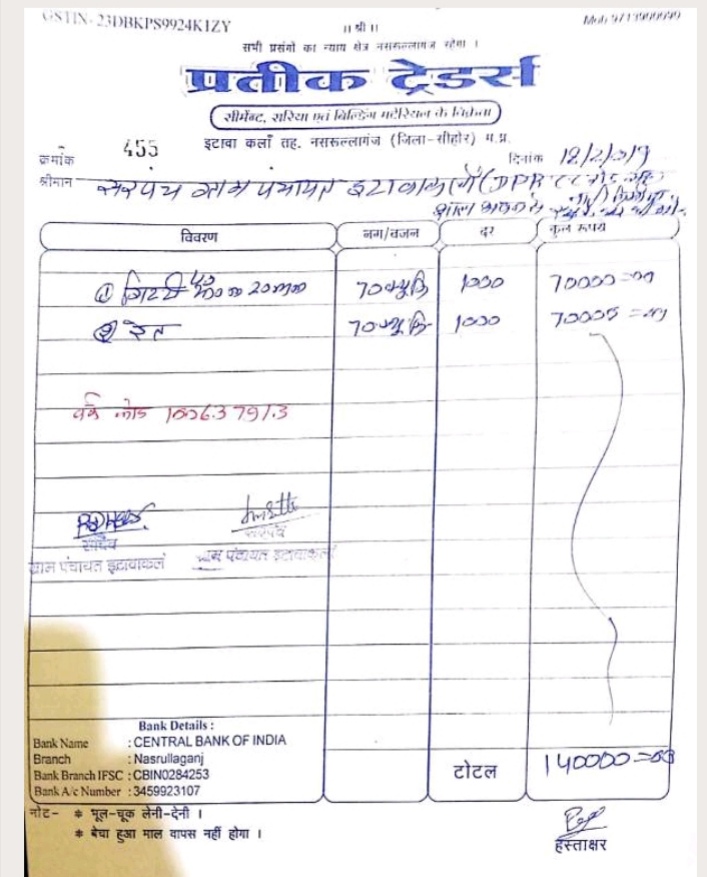 GSTIN- 23DBKPS9924K1ZY
।। श्री ।।
सभी प्रसंगों का न्याय क्षेत्र नसरुल्लागंज रहेगा ।
प्रतीक ट्रेडर्स
सीमेंट, सरिया एवं बिल्डिंग मटेरियल के विक्रेता
इटावा कलाँ तह. नसरुल्लागंज (जिला-सीहोर) म.प्र.
क्रमांक 455
दिनांक
श्रीमान सरपंच ग्राम पंचायत इटावाकलां
विवरण नग/वजन दर कुल रूपये
① गिट्टी 20 mm 70 1000 70000=00
② रेत 70 1000 70000=00
सचिव सरपंच
ग्राम पंचायत इटावाकलां ग्राम पंचायत इटावाकलां
Bank Details :
Bank Name : CENTRAL BANK OF INDIA
Branch : Nasrullaganj
Bank Branch IFSC : CBIN0284253
Bank A/c Number : 3459923107
टोटल 140000=00
नोट- * भूल-चूक लेनी-देनी ।
* बेचा हुआ माल वापस नहीं होगा ।
हस्ताक्षर